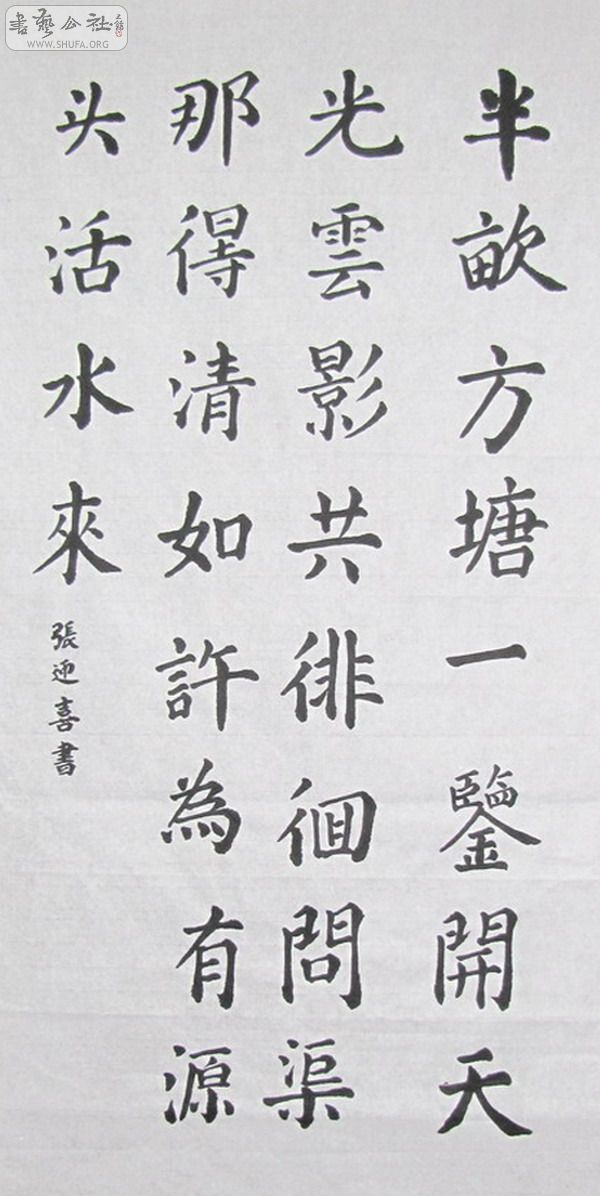 半畝方塘一鑒開天
光雲影共徘徊問渠
那得清如許為有源
头活水來
張迎喜書
書藝公社
WWW.SHUFA.ORG